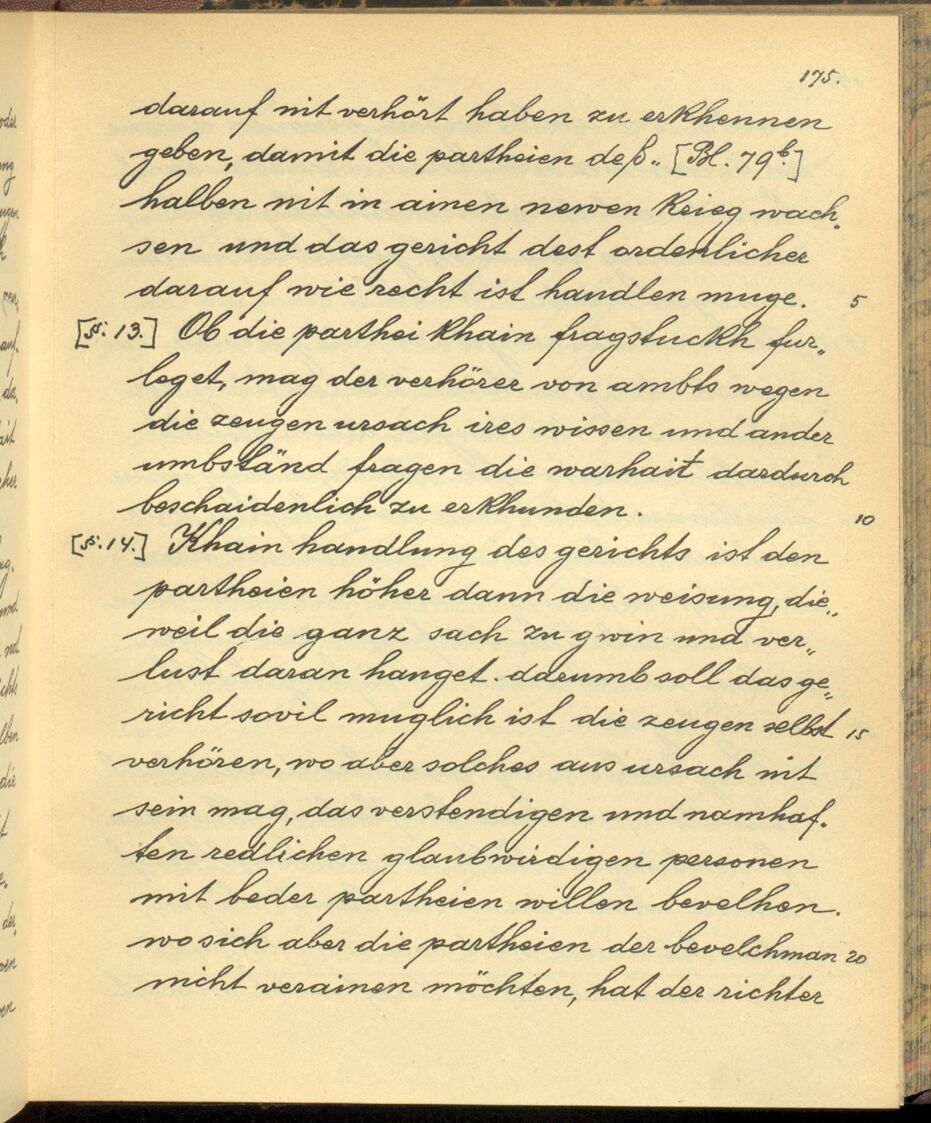 175.
darauf nit verhört haben zu erkhennen
geben, damit die partheien deß„ [Bl. 79b.]
halben nit in ainen newen krieg wach„
sen und das gericht dest ordenlicher
darauf wie recht ist handlen muge. 5
[§. 13.] Ob die parthei khain fragstuckh fur„
leget, mag der verhörer von ambts wegen
die zeugen ursach ires wissen und ander
umbständ fragen die warhait dardurch
beschaidenlich zu erkhunden. 10
[§. 14.] Khain handlung des gerichts ist den
partheien höher dann die weisung, die„
weil die ganz sach zu gwin und ver„
lust daran hanget. darumb soll das ge„
richt sovil muglich ist die zeugen selbst 15
verhören, wo aber solches aus ursach nit
sein mag, das verstendigen und namhaf„
ten redlichen glaubwirdigen personen
mit beder partheien willen bevelhen.
wo sich aber die partheien der bevelchman 20
nicht verainen möchten, hat der richter